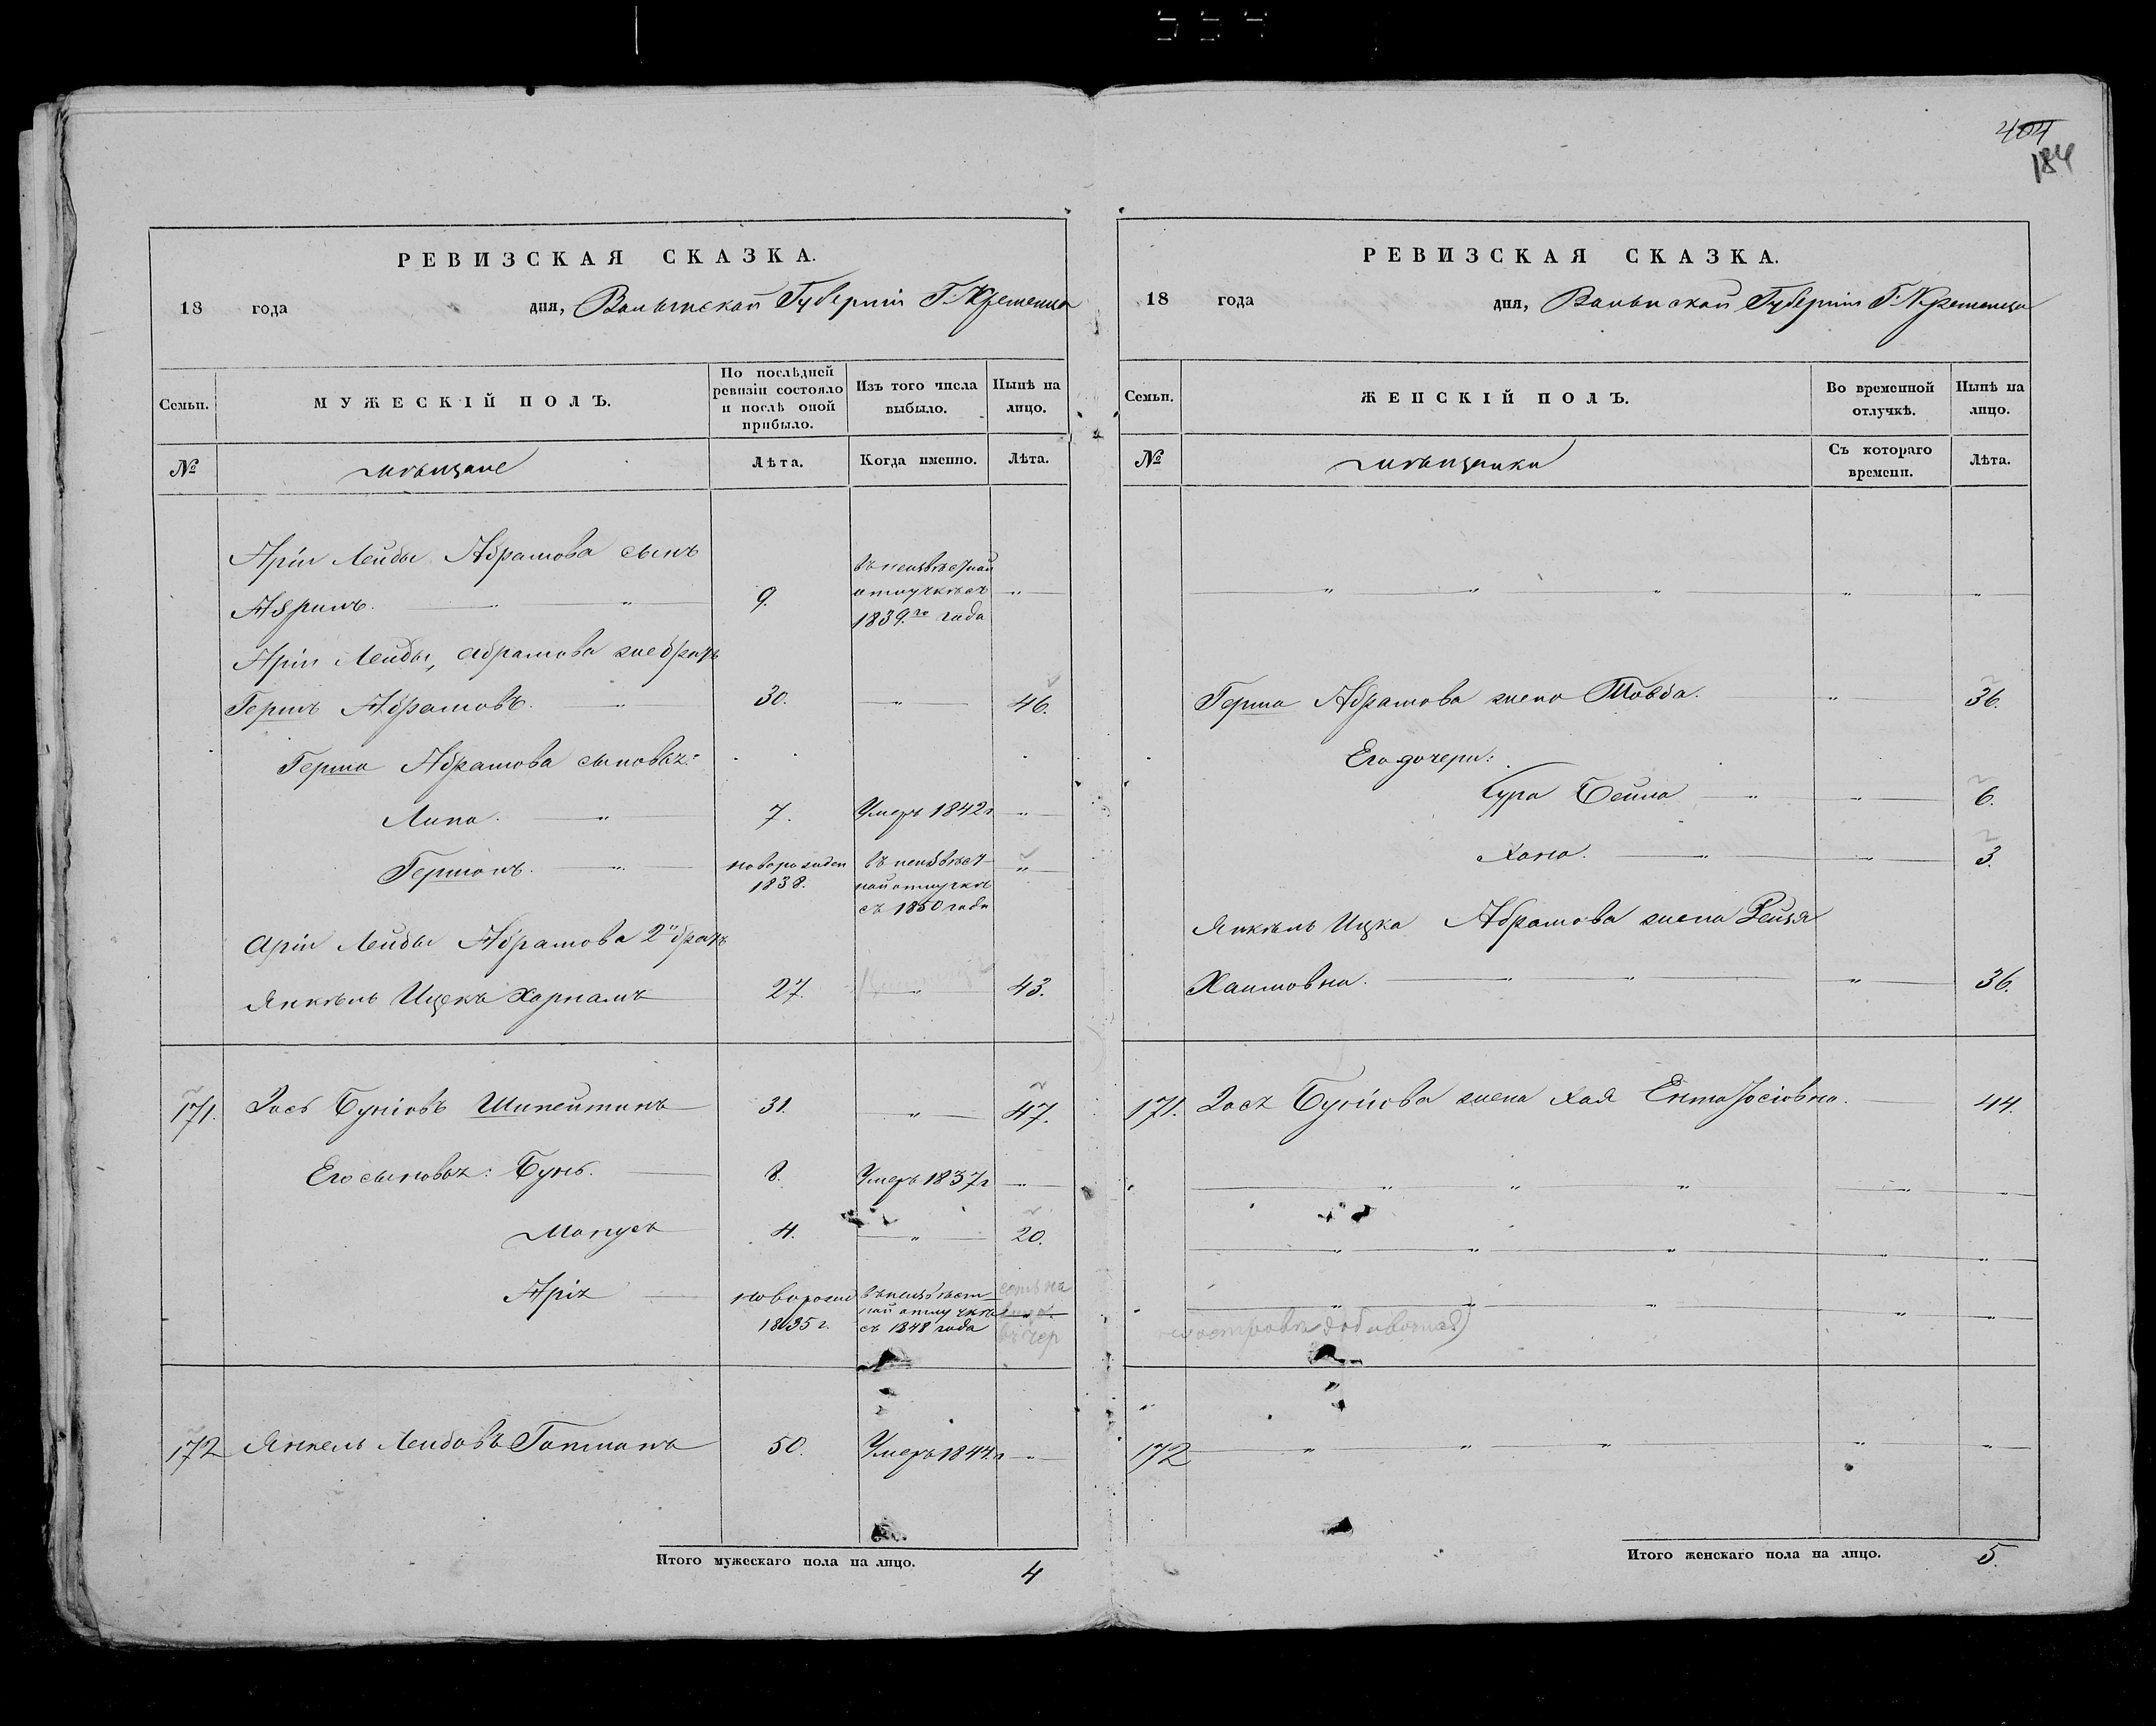 404
184
РЕВИЗСКАЯ СКАЗКА.
18 года дня, Волынской Губерніи Г: Кременца
Семьи. МУЖЕСКІЙ ПОЛЪ. По послѣдней ревизіи состояло и послѣ оной прибыло. Изъ того числа выбыло. Нынѣ на лицо.
№ мѣщане Лѣта. Когда именно. Лѣта.
Аріи Лейбы Абрамова сынъ
9. въ неизвѣстной отлучкѣ съ 1839.го года „
Аріи Лейбы, Абрамова же братъ
Гершъ Абрамовъ. „ 30. „ 46.
Герша Абрамова сыновья:
Липа. „ 7. Умеръ 1842 г „
Гершонъ. „ новорожден 1838. въ неизвѣстной отлучкѣ съ 1850 года „
Аріи Лейбы Абрамова 2й братъ
Янкель Ицекъ 27. „ 43.
171. Зось Буніовъ 31. „ 47.
Его сыновья: Бунь. 8. Умеръ 1837 г „
Манусъ 4. „ 20.
Арія новорожд 1835 г. въ неизвѣстной отлучкѣ съ 1848 года есть на лицо
172 Янкель Лейбовъ 50. Умеръ 1844. г „
Итого мужескаго пола на лицо. 4
РЕВИЗСКАЯ СКАЗКА.
18 года дня, Волынской Губерніи Г: Кременца
Семьи. ЖЕНСКІЙ ПОЛЪ. Во временной отлучкѣ. Нынѣ на лицо.
№ мѣщанки Съ котораго времени. Лѣта.
„ „ „ „ „
Герша Абрамова жена Товба. „ 36.
Его дочери:
Сура Бейла „ „ 6.
Хана. „ „ 3.
Янкель Ицка Абрамова жена Рейзя
Хаимовна. „ „ „ 36.
171. Зося Буніова жена Хая Ента Іосіовна. 44.
„ „ „ „ „
„ „ „ „ „
„ „ „ „ „
172 „ „ „ „ „
Итого женскаго пола на лицо. 5.